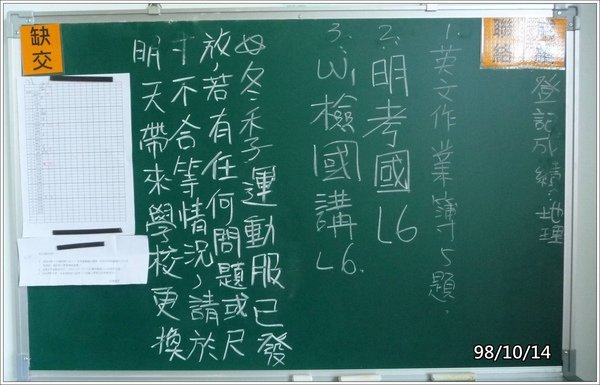 聯絡
登記成績:地理
1. 英文作業簿5題.
2. 明考國L6
3. 檢國講L6.
冬季運動服已發
放,若有任何問題或尺
寸不合等情況,請於
明天帶來學校更換
缺交
98/10/14